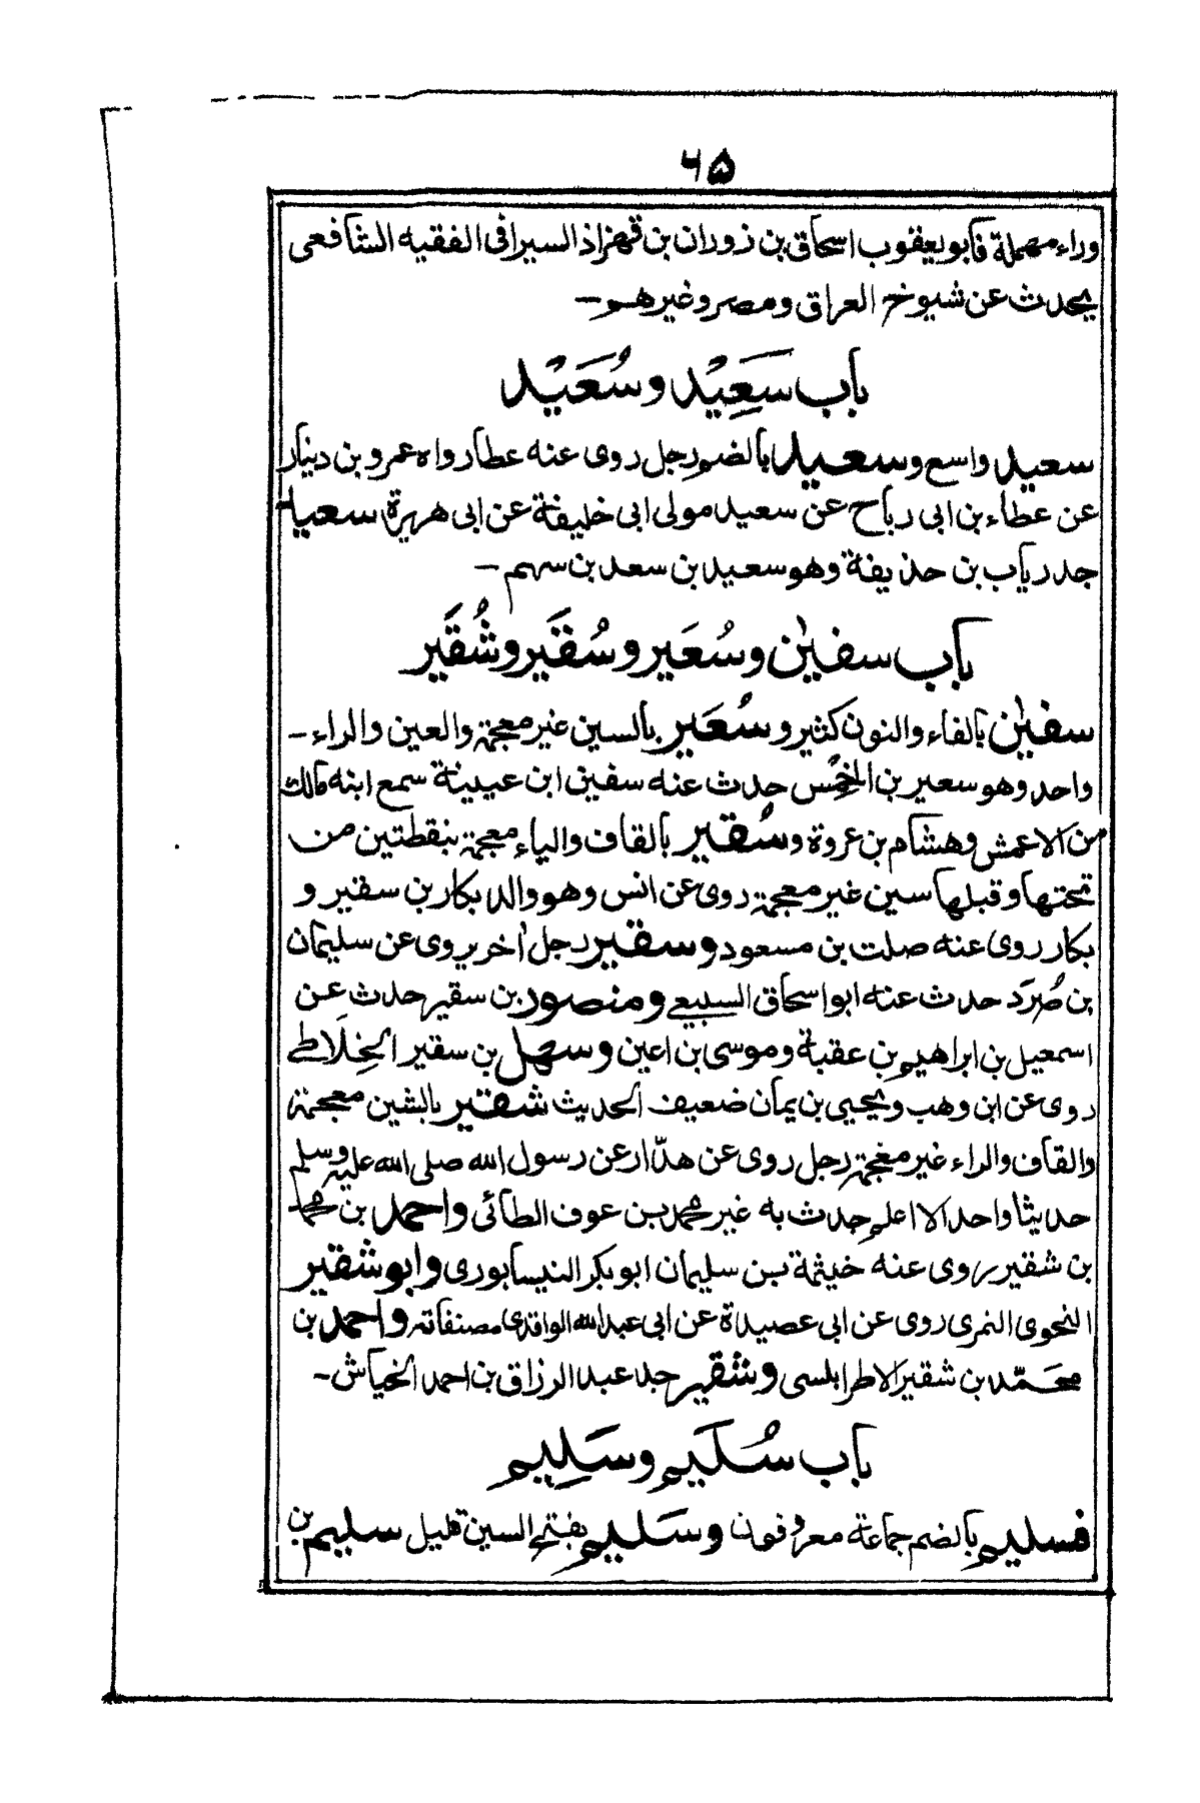 ۶۵
وراء مهملة فابو يعقوب اسحاق بن زوران بن قهزاذ السيرافى الفقيه الشافعى
يحدث عن شيوخ العراق ومصر وغيرهم—
باب سَعِيْد وسُعَيْد
سعيد واسع وسعيد بالضم رجل روى عنه عطار واه عمرو بن دينار
عن عطاء بن ابى رباح عن سعيد مولى ابى خليفة عن ابى هريرة سعيد
جد رياب بن حذيفة وهو سعيد بن سعد بن سهم—
باب سفيٰن وسُعَير وسُقَير وشُقَير
سفيٰن بالفاء والنون كثير وسُعَير بالسين غير معجمة والعين والراء—
واحد وهو سعير بن الخِمْس حدث عنه سفين ابن عيينة سمع ابنه مالك
من الاعمش وهشام بن عروة وسُقير بالقاف والياء معجمة بنقطتين من
تحتها وقبلها سين غير معجمة روى عن انس وهو والد بكار بن سقير و
بكار روى عنه صلت بن مسعود وسقير رجل اٰخر يروى عن سليمان
بن صُرَد حدث عنه ابو اسحاق السبيعي ومنصور بن سقير حدث عن
اسمعيل بن ابراهيم بن عقبة وموسى بن اعين وسهل بن سقير الخِلَاطي
روى عن ابن وهب ويحيى بن يمان ضعيف الحديث شقير بالشين معجمة
والقاف والراء غير معجمة رجل روى عن هدّار عن رسول الله صلى الله عليه وسلم
حديثا واحد الا اعلم حدث به غير محمد بن عوف الطائى واحمد بن محمد
بن شقير روى عنه خيثمة بن سليمان ابو بكر النيسابورى وابو شقير
النحوى النمرى روى عن ابى عصيدة عن ابى عبد الله الواقدى مصنفاته واحمد بن
محمّد بن شقير الاطرابلسى وشقير جد عبد الرزاق بن احمد الخياش—
باب سُلَيم وسَلِيم
فسليم بالضم جماعة معروفون وسَليم بفتح السين قليل سليم بن